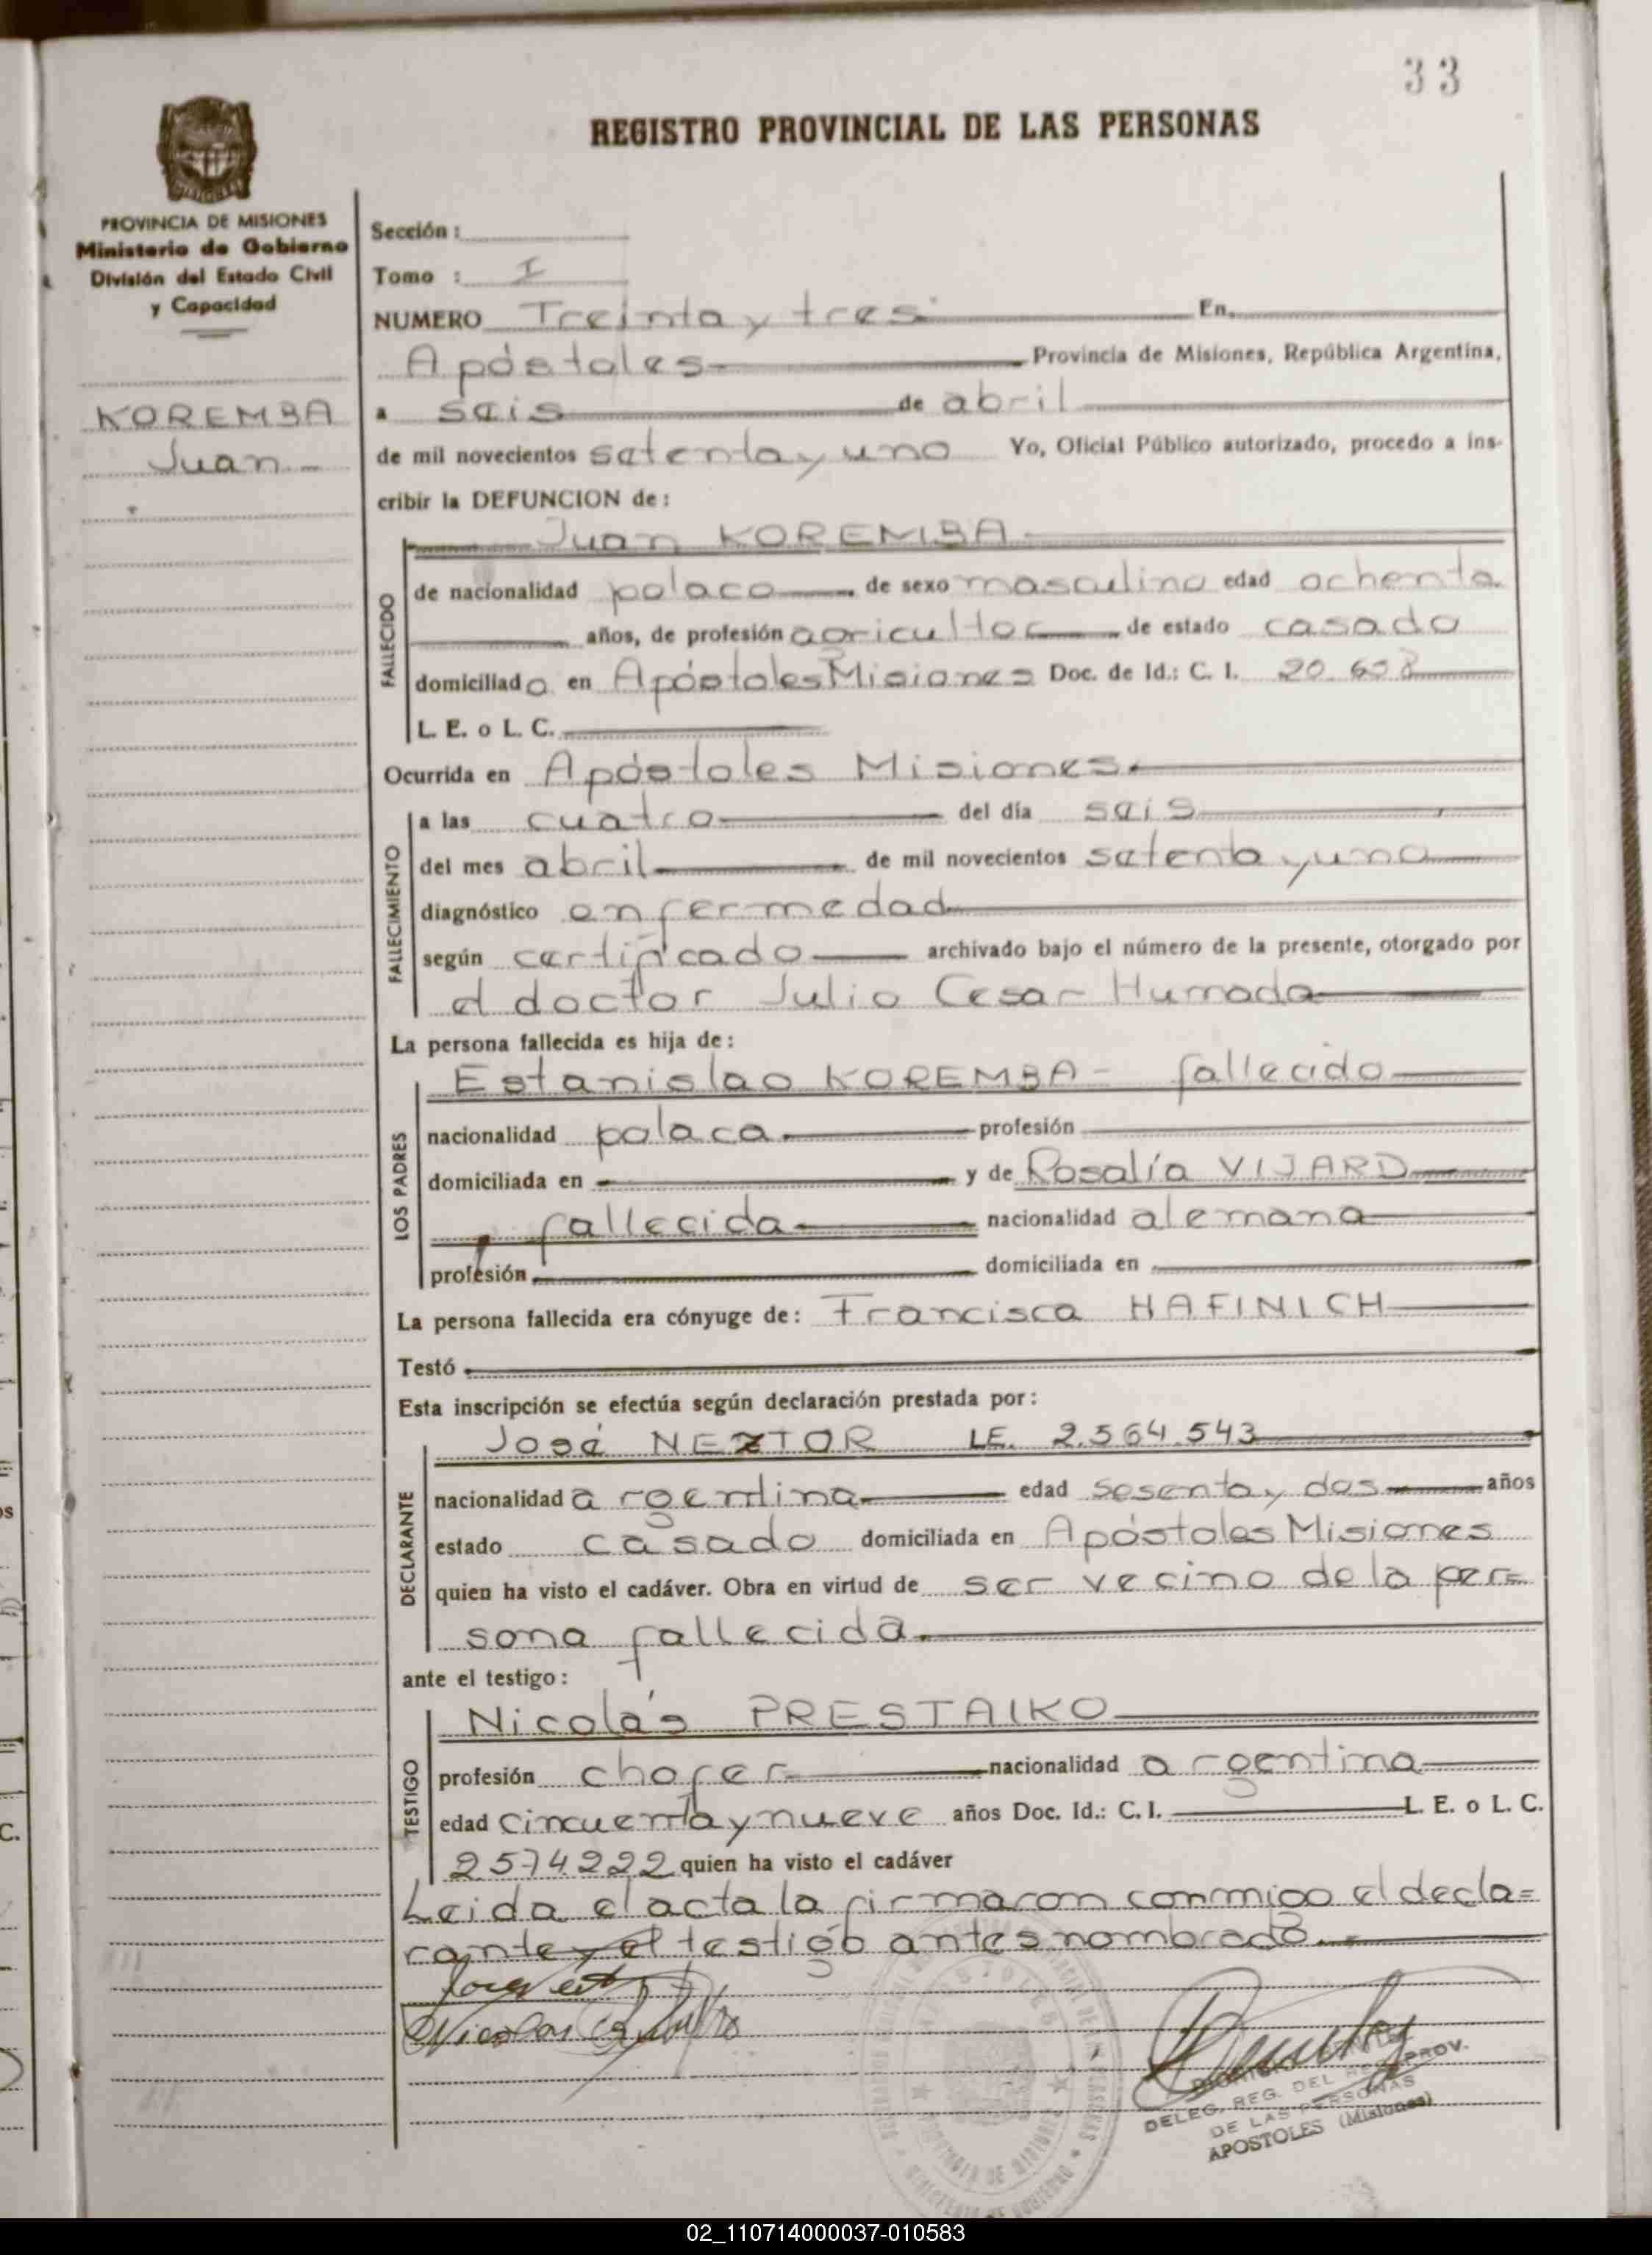 33
REGISTRO PROVINCIAL DE LAS PERSONAS
PROVINCIA DE MISIONES
Ministerio de Gobierno
División del Estado Civil
y Capacidad
KOREMBA
Juan
Sección :
Tomo : I
NUMERO Treinta y tres En
Apóstoles Provincia de Misiones, República Argentina,
a seis de abril
de mil novecientos setenta y uno Yo, Oficial Público autorizado, procedo a ins-
cribir la DEFUNCION de :
Juan KOREMBA
FALLECIDO
de nacionalidad polaco de sexo masculino edad ochenta
años, de profesión agricultor de estado casado
domiciliado en Apóstoles Misiones Doc. de Id.: C. I. 20.608
L. E. o L. C.
Ocurrida en Apóstoles Misiones.
FALLECIMIENTO
a las cuatro del día seis
del mes abril de mil novecientos setenta y uno
diagnóstico enfermedad
según certificado archivado bajo el número de la presente, otorgado por
el doctor Julio Cesar Humada
La persona fallecida es hija de :
LOS PADRES
Estanislao KOREMBA - fallecido
nacionalidad polaca profesión
domiciliada en y de Rosalía VIJARD
fallecida nacionalidad alemana
profesión domiciliada en
La persona fallecida era cónyuge de : Francisca HAFINICH
Testó
Esta inscripción se efectúa según declaración prestada por :
DECLARANTE
José NEZTOR LE. 2.564.543
nacionalidad argentina edad sesenta y dos años
estado casado domiciliada en Apóstoles Misiones
quien ha visto el cadáver. Obra en virtud de ser vecino de la per=
sona fallecida.
ante el testigo :
TESTIGO
Nicolás PRESTAIKO
profesión chofer nacionalidad argentina
edad cincuenta y nueve años Doc. Id.: C. I. L. E. o L. C.
2574222 quien ha visto el cadáver
Leida el acta la firmaron conmigo el decla=
rante y el testigo antes nombrado.
Nicolas
DELEG. REG. DEL REG. PROV.
DE LAS PERSONAS
APOSTOLES (Misiones)
02_110714000037-010583